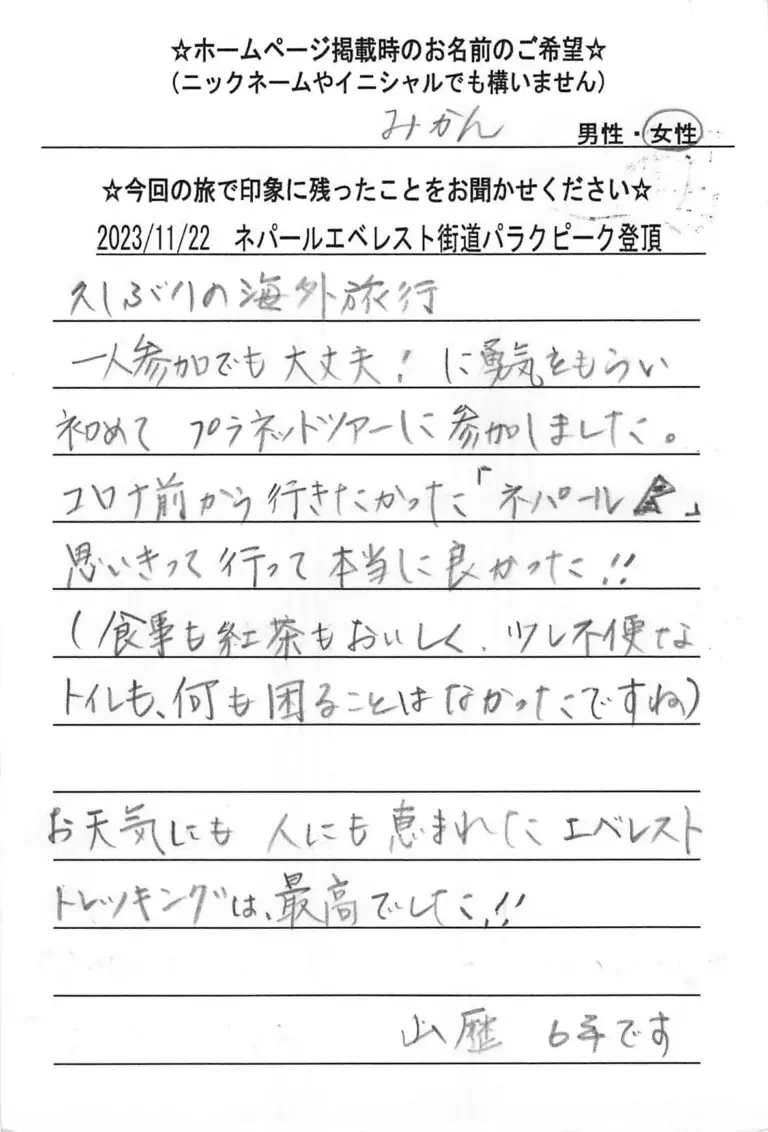 ☆ホームページ掲載時のお名前のご希望☆
(ニックネームやイニシャルでも構いません)
みかん 男性・女性
☆今回の旅で印象に残ったことをお聞かせください☆
2023/11/22 ネパールエベレスト街道パラクピーク登頂
久しぶりの海外旅行
一人参加でも大丈夫!に勇気をもらい
初めて プラネットツアーに参加しました。
コロナ前から行きたかった「ネパール」
思いきって行って本当に良かった!!
(食事も紅茶もおいしく、少し不便な
トイレも、何も困ることはなかったですね)
お天気にも 人にも恵まれた エベレスト
トレッキングは、最高でした!!
山歴 6年です